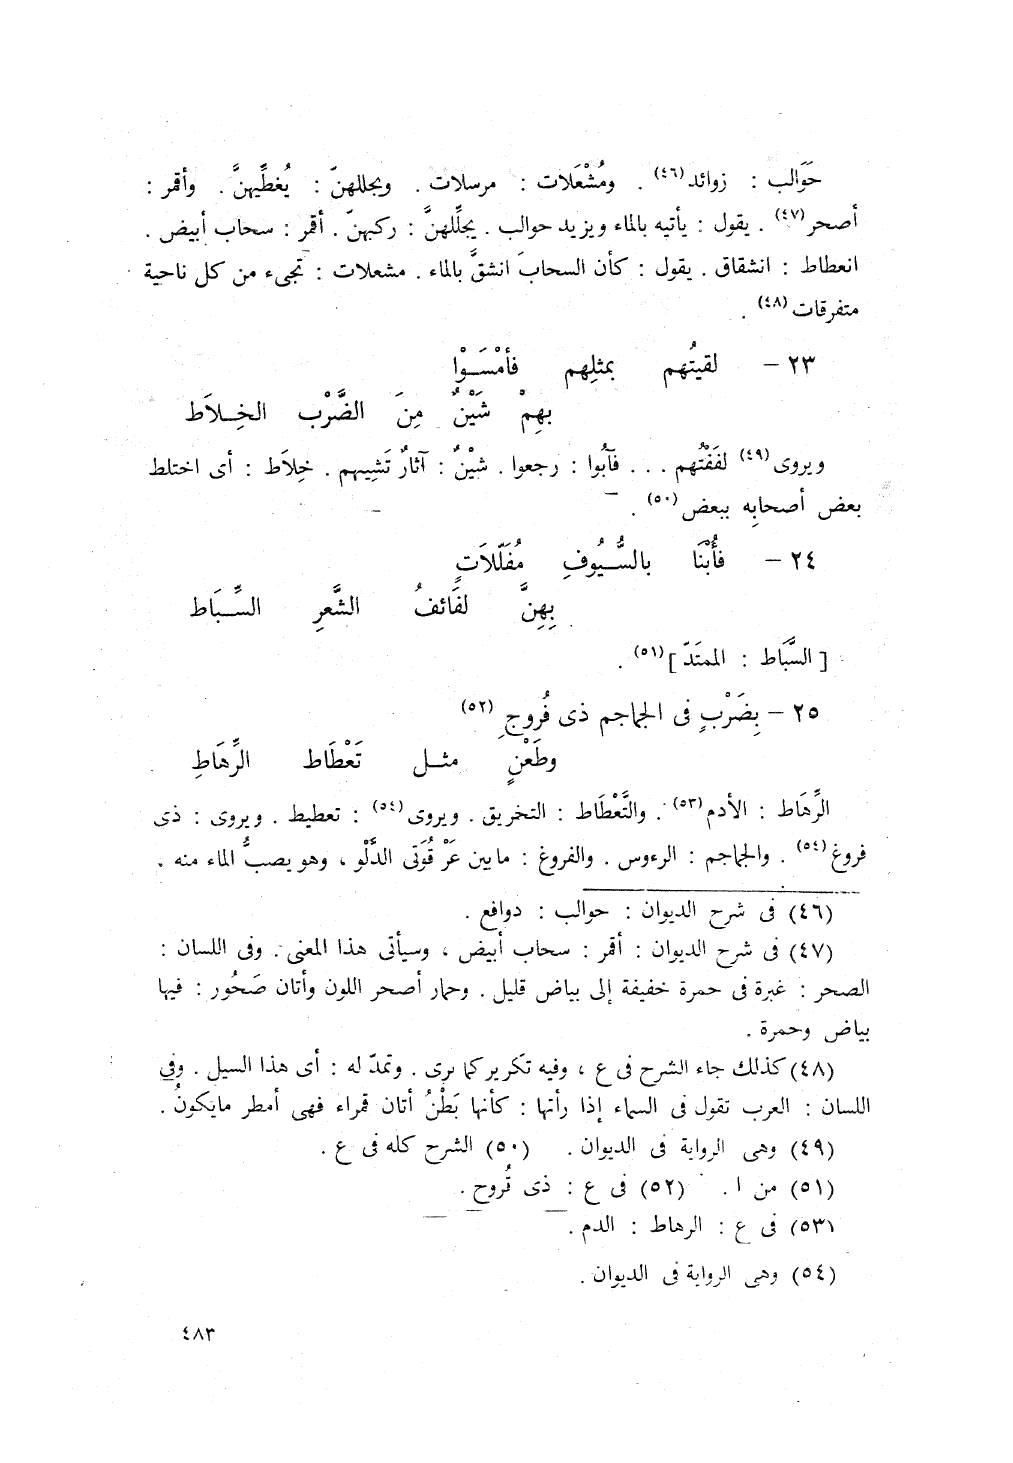 حَوَالب : زوائد(٤٦) . ومُشْعَلات : مرسلات . ويجللهنّ : يُغطِّيهنَّ . وأقمر :
أصحر(٤٧) . يقول : يأتيه بالماء ويزيد حوالب . يجلِّلهنَّ : ركبهنّ . أقمر : سحاب أبيض .
انعطاط : انشقاق . يقول : كأن السحابَ انشقَّ بالماء . مشعلات : تجىء من كل ناحية
متفرقات(٤٨) .
٢٣ – لقيتُهم بمثلِهم فأمْسَـوْا
بهِمْ شَيْنٌ مِنَ الضَّرْب الخِـلاَط
ويروى(٤٩) لفَفْتُهم . . . فآبُوا : رجعوا . شيْنٌ : آثارٌ تَشِيبهم . خِلاَط : أى اختلط
بعض أصحابِه ببعض(٥٠) .
٢٤ – فأُبْنَا بالسُّـيُوفِ مُفَلّلاَتٍ
بِهِنَّ لفَائفُ الشَّعرِ السِّبَاط
[ السَّبَاط : الممتَدّ ](٥١) .
٢٥ – بِضَرْبٍ فى الجماجم ذى فُروجِ(٥٢)
وطَعْنٍ مثـل تَعْطَاط الرِّهَاطِ
الرِّهَاط : الأدم(٥٣) . والتَّعْطَاط : التخريق . ويروى(٥٤) : تعطيط . ويروى : ذى
فروغ(٥٤) . والجماجم : الرءوس . والفروغ : مابين عَرْ قُوَتَى الدَّلْو ، وهو يصبُّ الماء منه .
(٤٦) فى شرح الديوان : حوالب : دوافع .
(٤٧) فى شرح الديوان : أقمر : سحاب أبيض ، وسيأتى هذا المعنى . وفى اللسان :
الصحر : غبرة فى حمرة خفيفة إلى بياض قليل . وحمار أصحر اللون وأتان صَحُور : فيها
بياض وحمرة .
(٤٨) كذلك جاء الشرح فى ع ، وفيه تكرير كما نرى . وتمدّ له : أى هذا السيل . وفى
اللسان : العرب تقول فى السماء إذا رأتها : كأنها بَطْنُ أتان قمراء فهى أمطر مايكونُ .
(٤٩) وهى الرواية فى الديوان . (٥٠) الشرح كله فى ع .
(٥١) من ا . (٥٢) فى ع : ذى قُروح .
(٥٣) فى ع : الرهاط : الدم .
(٥٤) وهى الرواية فى الديوان .
٤٨٣